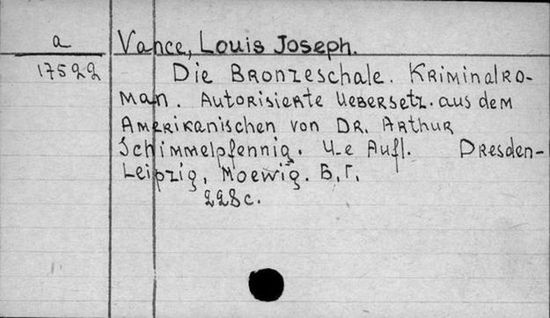 a Vance, Louis Joseph.
17522 Die Bronzeschale. Kriminalro-
man. Autorisierte Uebersetz. aus dem
Amerikanischen von Dr. Arthur
Schimmelpfennig. 4-e Aufl. Dresden-
Leipzig, Moewig. Б.г.
228с.